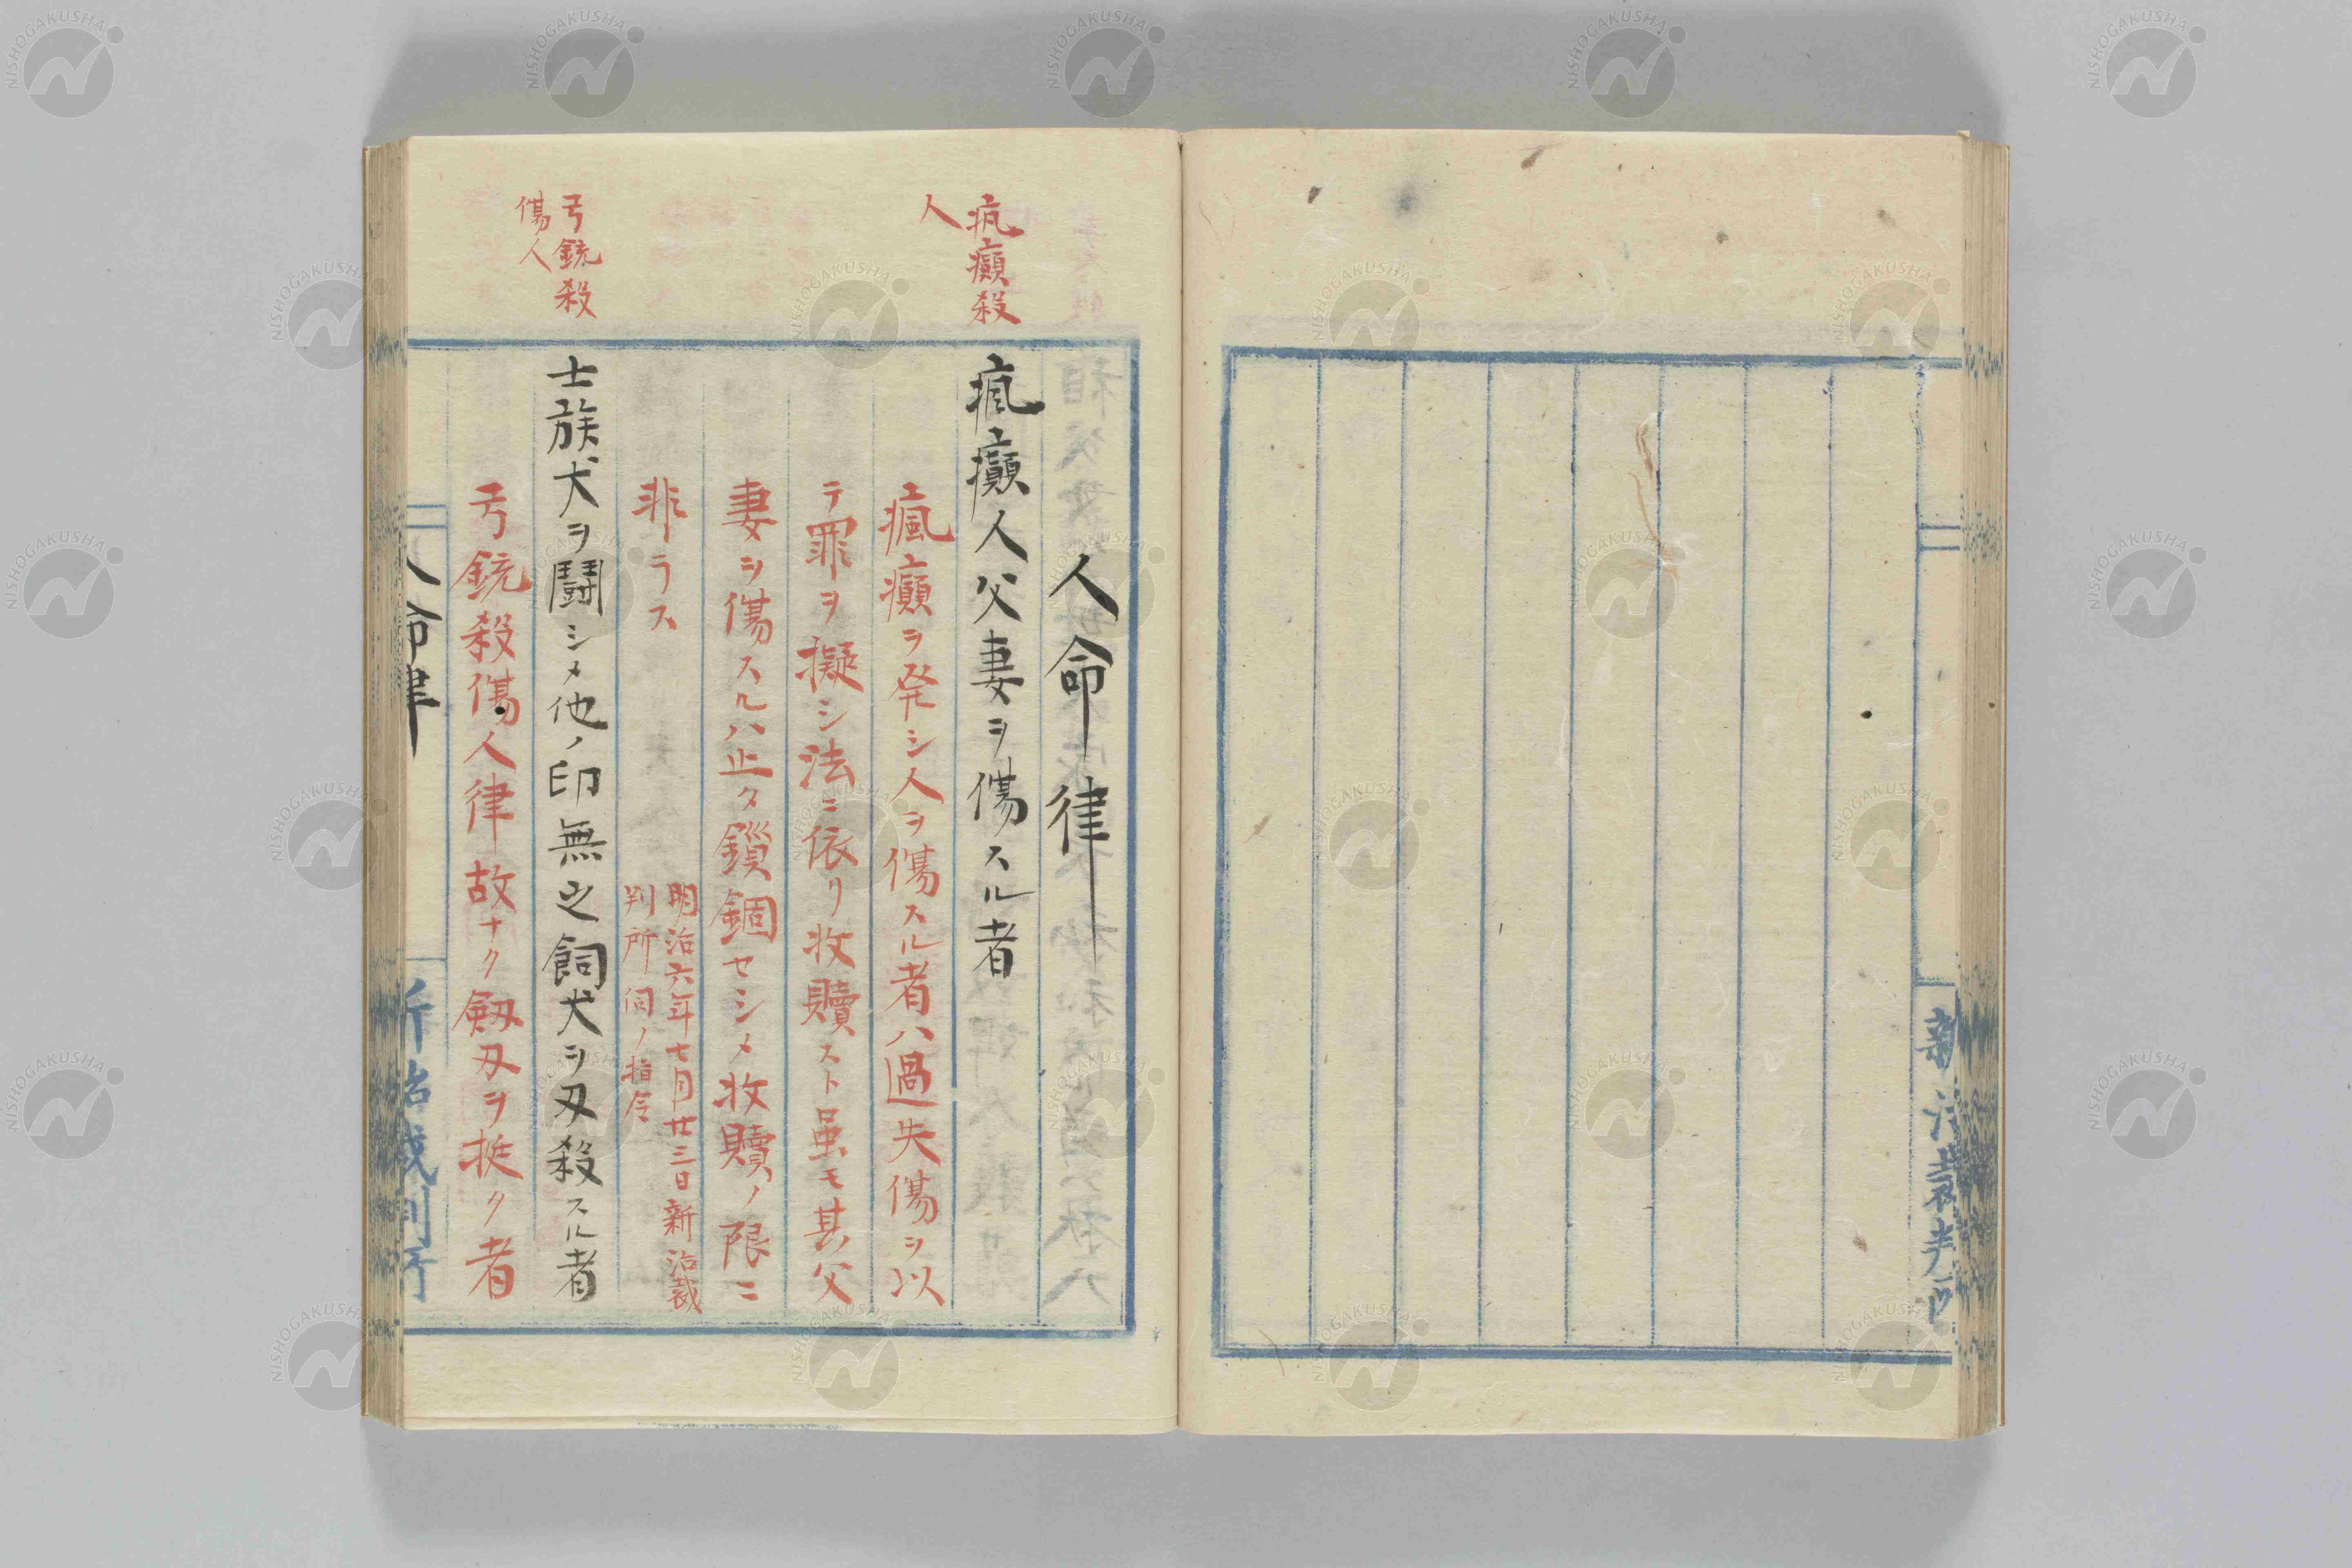 人命律
瘋癲殺
人
瘋癲人父妻ヲ傷スル者
瘋癲ヲ発シ人ヲ傷スル者ハ過失傷ヲ以
テ罪ヲ擬シ法ニ依リ收贖スト虽モ其父
妻ヲ傷スルハ止タ鎖錮セシメ收贖ノ限ニ
非ラス
明治六年七月廿三日新治裁
判所伺ノ指令
弓銃殺
傷人
士族犬ヲ鬪シメ他ノ印無之飼犬ヲ刃殺スル者
弓銃殺傷人律故ナク劔刃ヲ挺ク者
人命律
新治裁判所
新治裁判所
NISHOGAKUSHA